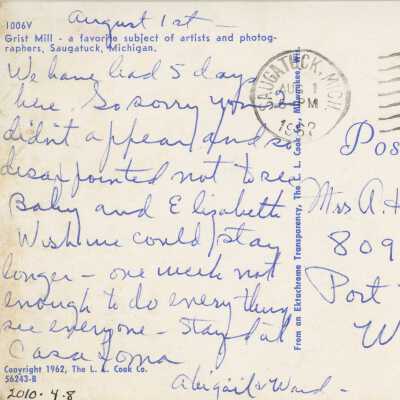 August 1st —
1006V
Grist Mill - a favorite subject of artists and photog-
raphers, Saugatuck, Michigan.
We have had 5 days
here. So sorry you
didn't appear and so
disappointed not to see
Baby and Elizabeth
Wish we could stay
longer — one week not
enough to do everything
see everyone — Stayed at
Casa Loma
Abigail & Ward —
Copyright 1962, The L. L. Cook Co.
56243-B
2010. 4.8
SAUGATUCK, MICH.
AUG 1
PM
From an Ektachrome Transparency, The L. L. Cook Co., Milwaukee, Wis.
Pos
Mrs A. H
809
Port
W